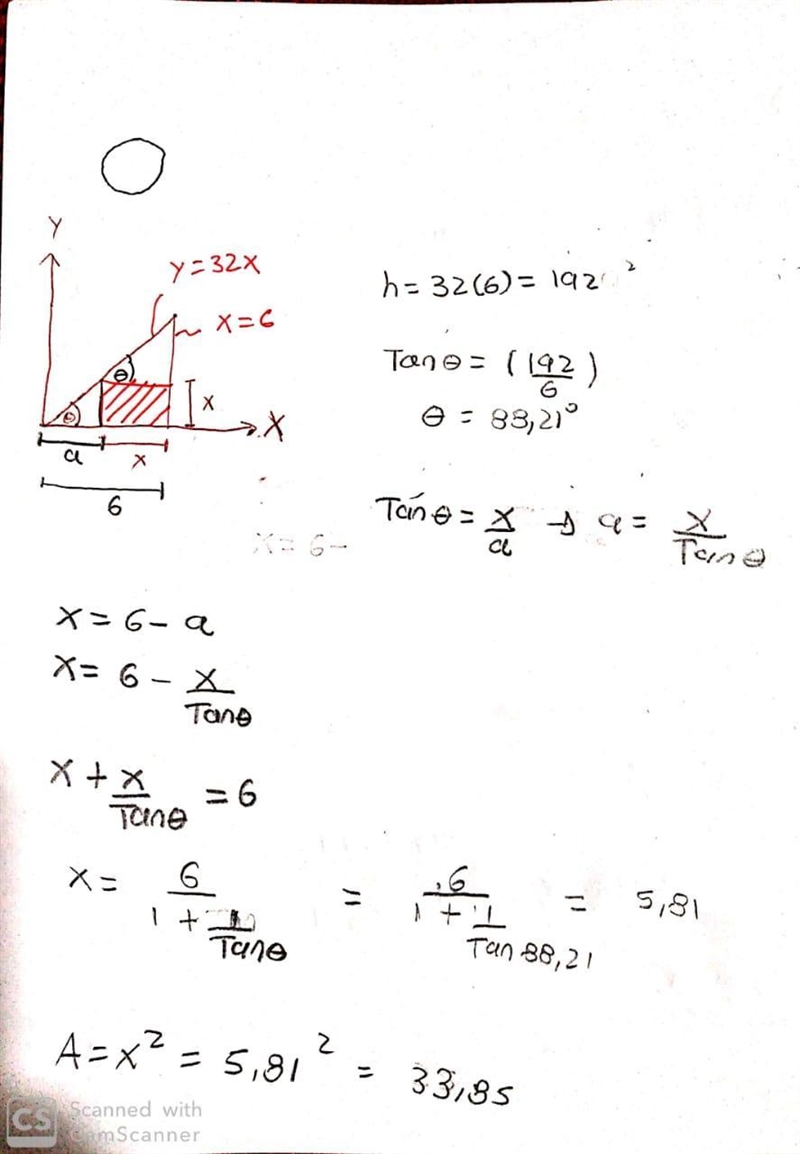 Y
y=32x
x=6
θ
θ
x
X
a
x
6
h= 32(6)= 192 ²
Tanθ= (192/6)
θ = 88,21°
Tanθ = x/a → a = x/Tanθ
x= 6-
x= 6- a
x= 6 - x/Tanθ
x + x/Tanθ = 6
x= 6/(1 + 1/Tanθ) = 6/(1 + 1/Tan 88,21) = 5,81
A=x² = 5,81² = 33,85
CS
Scanned with
CamScanner